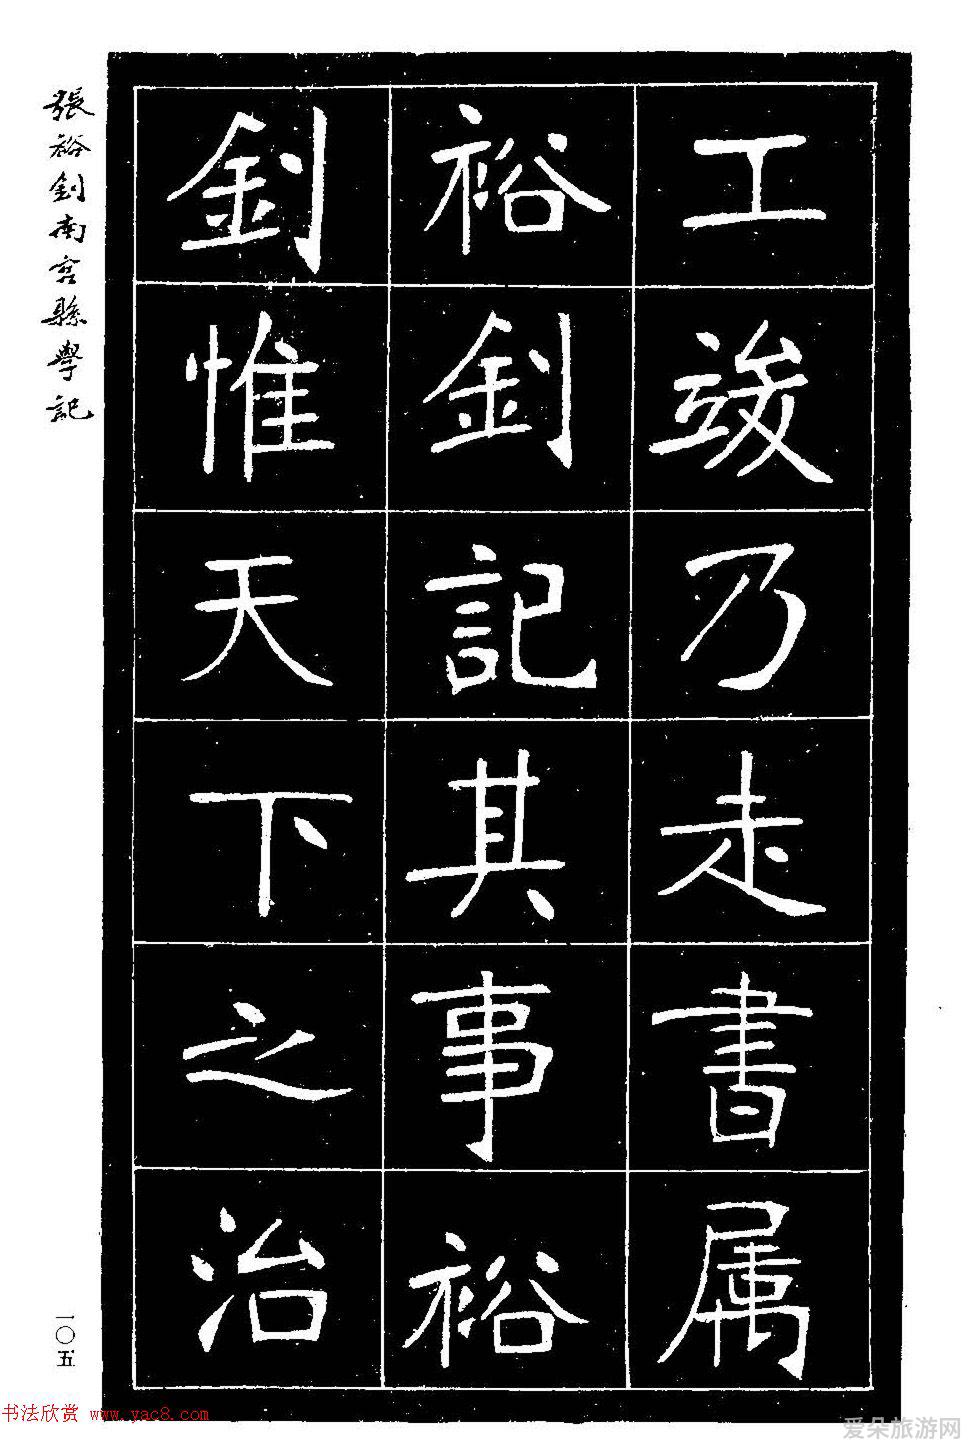 工竣乃走書屬
裕釗記其事裕
釗惟天下之治
張裕釗南宮縣學記
一〇五
书法欣赏 www.yac8.com
爱朵旅游网